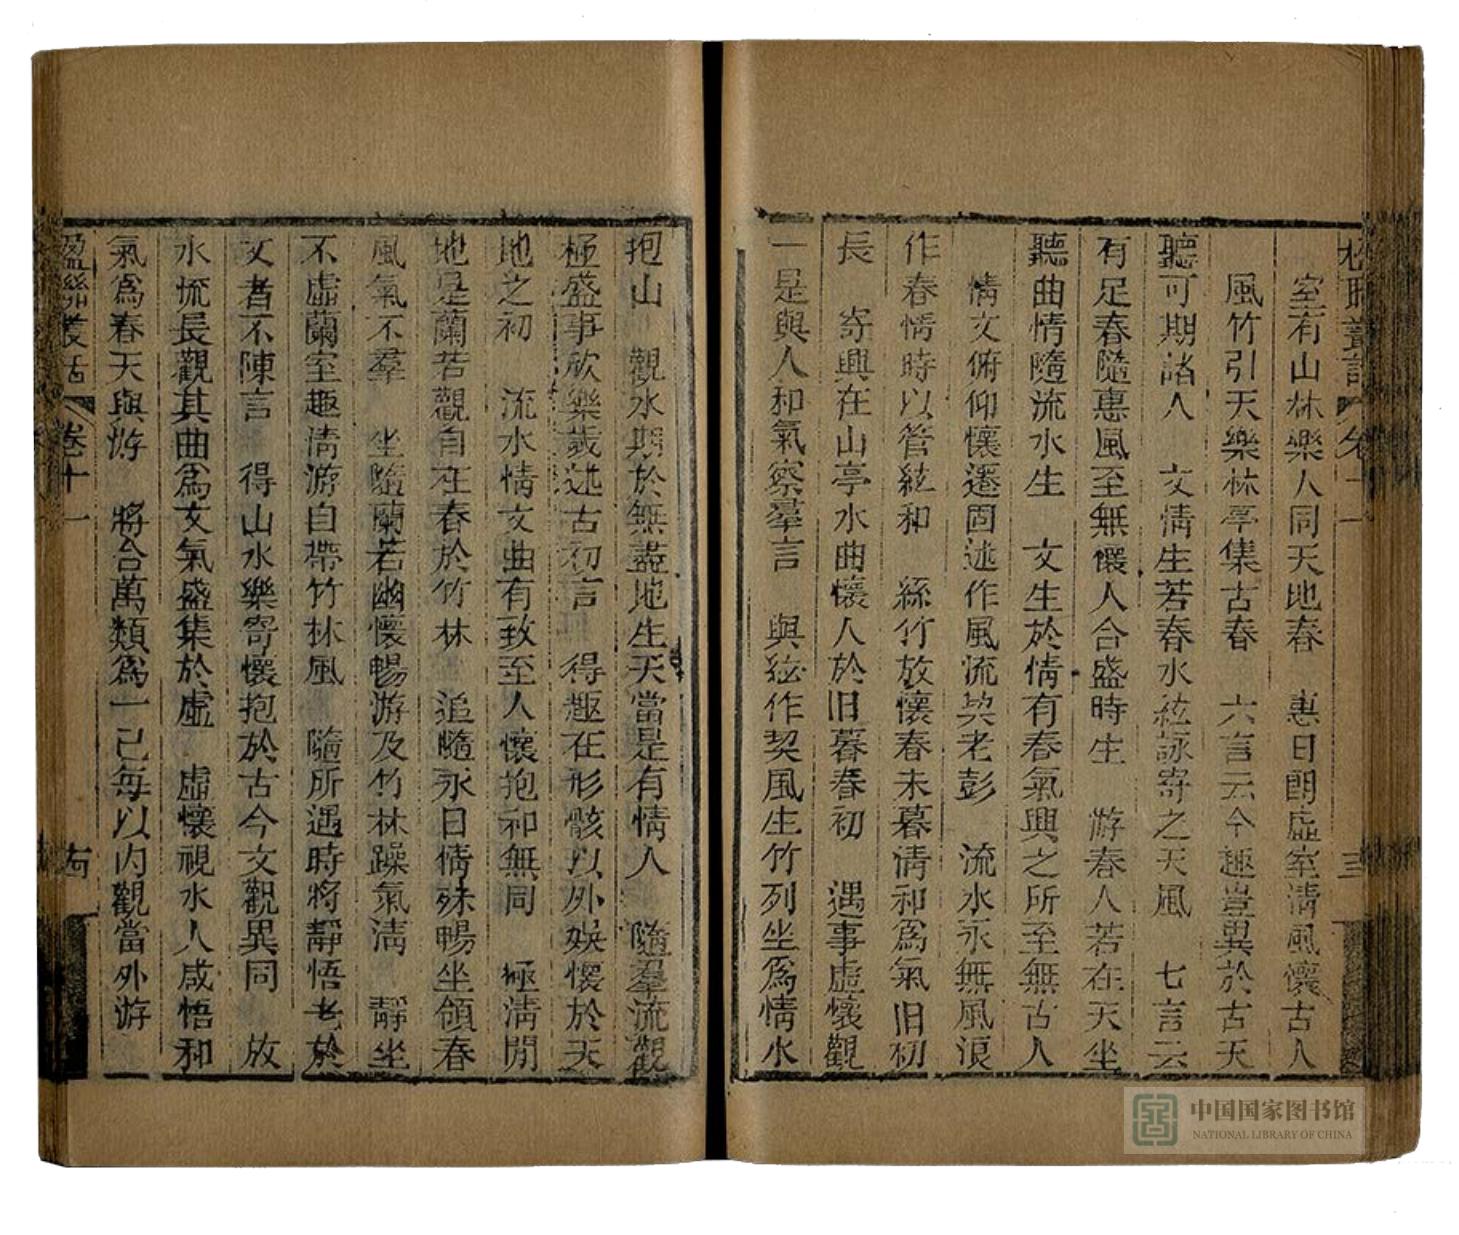 室有山林樂人同天地春 惠日朗虛室清風懷古人
風竹引天樂林亭集古春 六言云今趣豈異於古天
聽可期諸人 文情生若春水絃詠寄之天風 七言云
有足春隨惠風至無懷人合盛時生 游春人若在天坐
聽曲情隨流水生 文生於情有春氣興之所至無古人
情文俯仰懷遷固述作風流契老彭 流水永無風浪
作春情時以管絃和 絲竹放懷春未暮清和為氣旧初
長 寄興在山亭水曲懷人於旧暮春初 遇事虛懷觀
一是與人和氣察羣言 與絃作契風生竹列坐為情水
抱山 觀水期於無盡地生天當是有情人 隨羣流觀
極盛事欣樂歲述古初言 得趣在形骸以外娛懷於天
地之初 流水情文曲有致至人懷抱和無同 極清閒
地是蘭若觀自在春於竹林 追隨永日情殊暢坐領春
風氣不羣 坐隨蘭若幽懷暢游及竹林躁氣清 靜坐
不虛蘭室趣清游自帶竹林風 隨所遇時將靜悟老於
文者不陳言 得山水樂寄懷抱於古今文觀異同 放
水流長觀其曲為文氣盛集於虛 虛懷視水人咸悟和
氣為春天與游 將合萬類為一己每以內觀當外游
楹聯叢話 卷十一
中国国家图书馆
NATIONAL LIBRARY OF CHINA